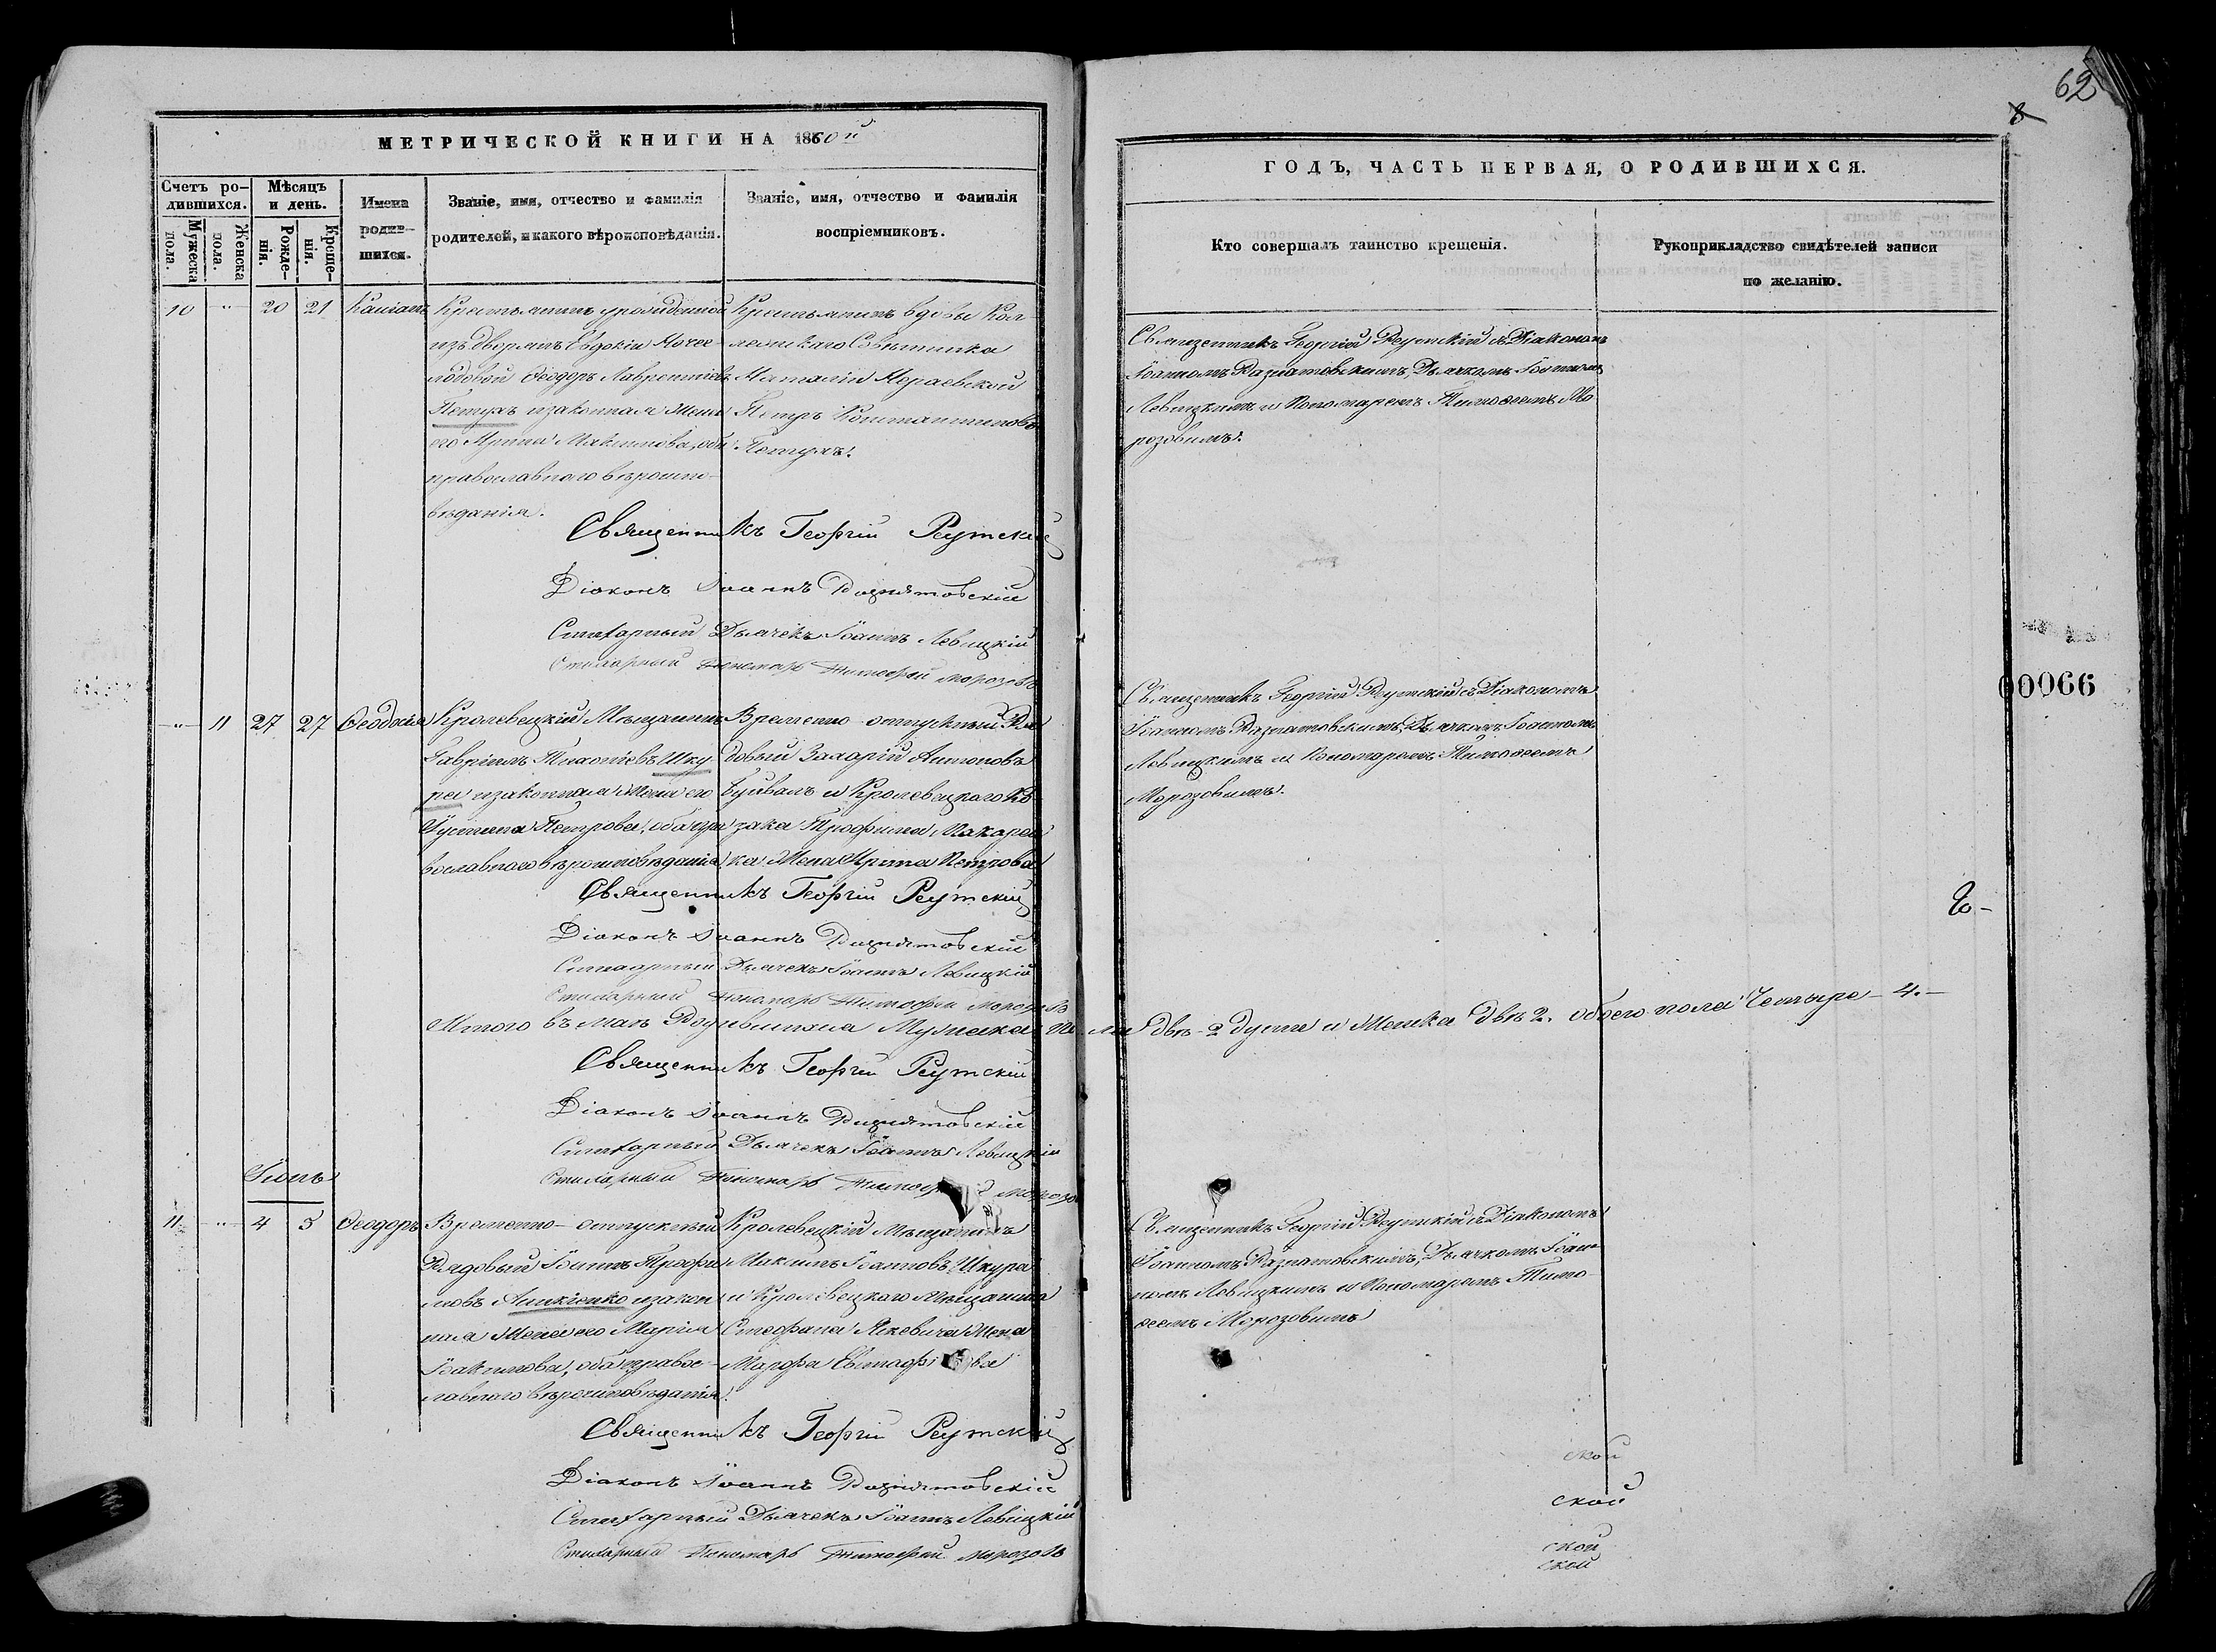 62
8
МЕТРИЧЕСКОЙ КНИГИ НА 1860й
ГОДЪ, ЧАСТЬ ПЕРВАЯ, О РОДИВШИХСЯ.
Счетъ ро-
дившихся.
Мужеска
пола.
Женска
пола.
Мѣсяцъ
и день.
Рожде-
нія.
Креще-
нія.
Имена
родив-
шихся.
Званіе, имя, отчество и фамилія
родителей, и какого вѣроисповѣданія.
Званіе, имя, отчество и фамилія
воспріемниковъ.
Кто совершалъ таинство крещенія.
Рукоприкладство свидѣтелей записи
по желанію.
10 " 20 21
Крестьянинъ урожденной
изъ дворянъ Евдокіи
Феодоръ Лаврентіевъ
Петухъ и законная жена
его православнаго вѣроиспо-
вѣданія.
Крестьянинъ вдовы Кол-
лежскаго Совѣтника
Наталіи
Петръ Константиновъ
Петухъ.
Священникъ Георгій Реутскій съ Діакономъ
Іоанномъ Разнатовскимъ, Дьячкомъ Іоанномъ
Левицкимъ и Пономаремъ Тимоѳеемъ Мо-
розовимъ.
Священникъ Георгій Реутскій
Діаконъ Іоаннъ Разнятовскій
Стихарный Дьячекъ Іоаннъ Левицкій
Стихарный Пономарь Тимофей Морозовъ
" 11 27 27 Ѳеодосія
Кролевецкій Мѣщанинъ
Гавріилъ Шку-
ра и законная жена его
Устина Петрова, оба пра-
вославнаго вѣроисповѣданія.
Временно-отпускный Ря-
довый Захарій Антоновъ
и Кролевецкаго Ко-
зака Трофима Макарен-
ка жена Ирина Петрова
Священникъ Георгій Реутскій съ Діакономъ
Іоанномъ Разнатовскимъ, Дьячкомъ Іоанномъ
Левицкимъ и Пономаремъ Тимоѳеемъ
Морозовимъ.
00066
Священникъ Георгій Реутскій
Діаконъ Іоаннъ Разнятовскій
Стихарный Дьячекъ Іоаннъ Левицкій
Стихарный Пономарь Тимофей Морозовъ
Итого въ маѣ Родившихся Мужеска По-ла двѣ 2 души и Женска двѣ 2. обоего пола Четыре 4.
Священникъ Георгій Реутскій
Діаконъ Іоаннъ Разнятовскій
Стихарный Дьячекъ Іоаннъ Левицкій
Стихарный Пономарь Тимофей Морозовъ
Іюнь
11 " 4 5 Ѳеодоръ
Временно-отпускный
Рядовый Іоаннъ Трофи-
мовъ и закон-
ная жена его Марія
Іоакимова, оба правос-
лавнаго вѣроисповѣданія.
Кролевецкій Мѣщанинъ
Максимъ Іоанновъ Шкура
и Кролевецкаго Мѣщанина
Стефана жена
Марфа
Священникъ Георгій Реутскій съ Діакономъ
Іоанномъ Разнатовскимъ, Дьячкомъ Іоан-
номъ Левицкимъ и Пономаремъ Тимо-
ѳеемъ Морозовимъ
Священникъ Георгій Реутскій
Діаконъ Іоаннъ Разнятовскій
Стихарный Дьячекъ Іоаннъ Левицкій
Стихарный Пономарь Тимофей Морозовъ
ской
ской
ской
ской